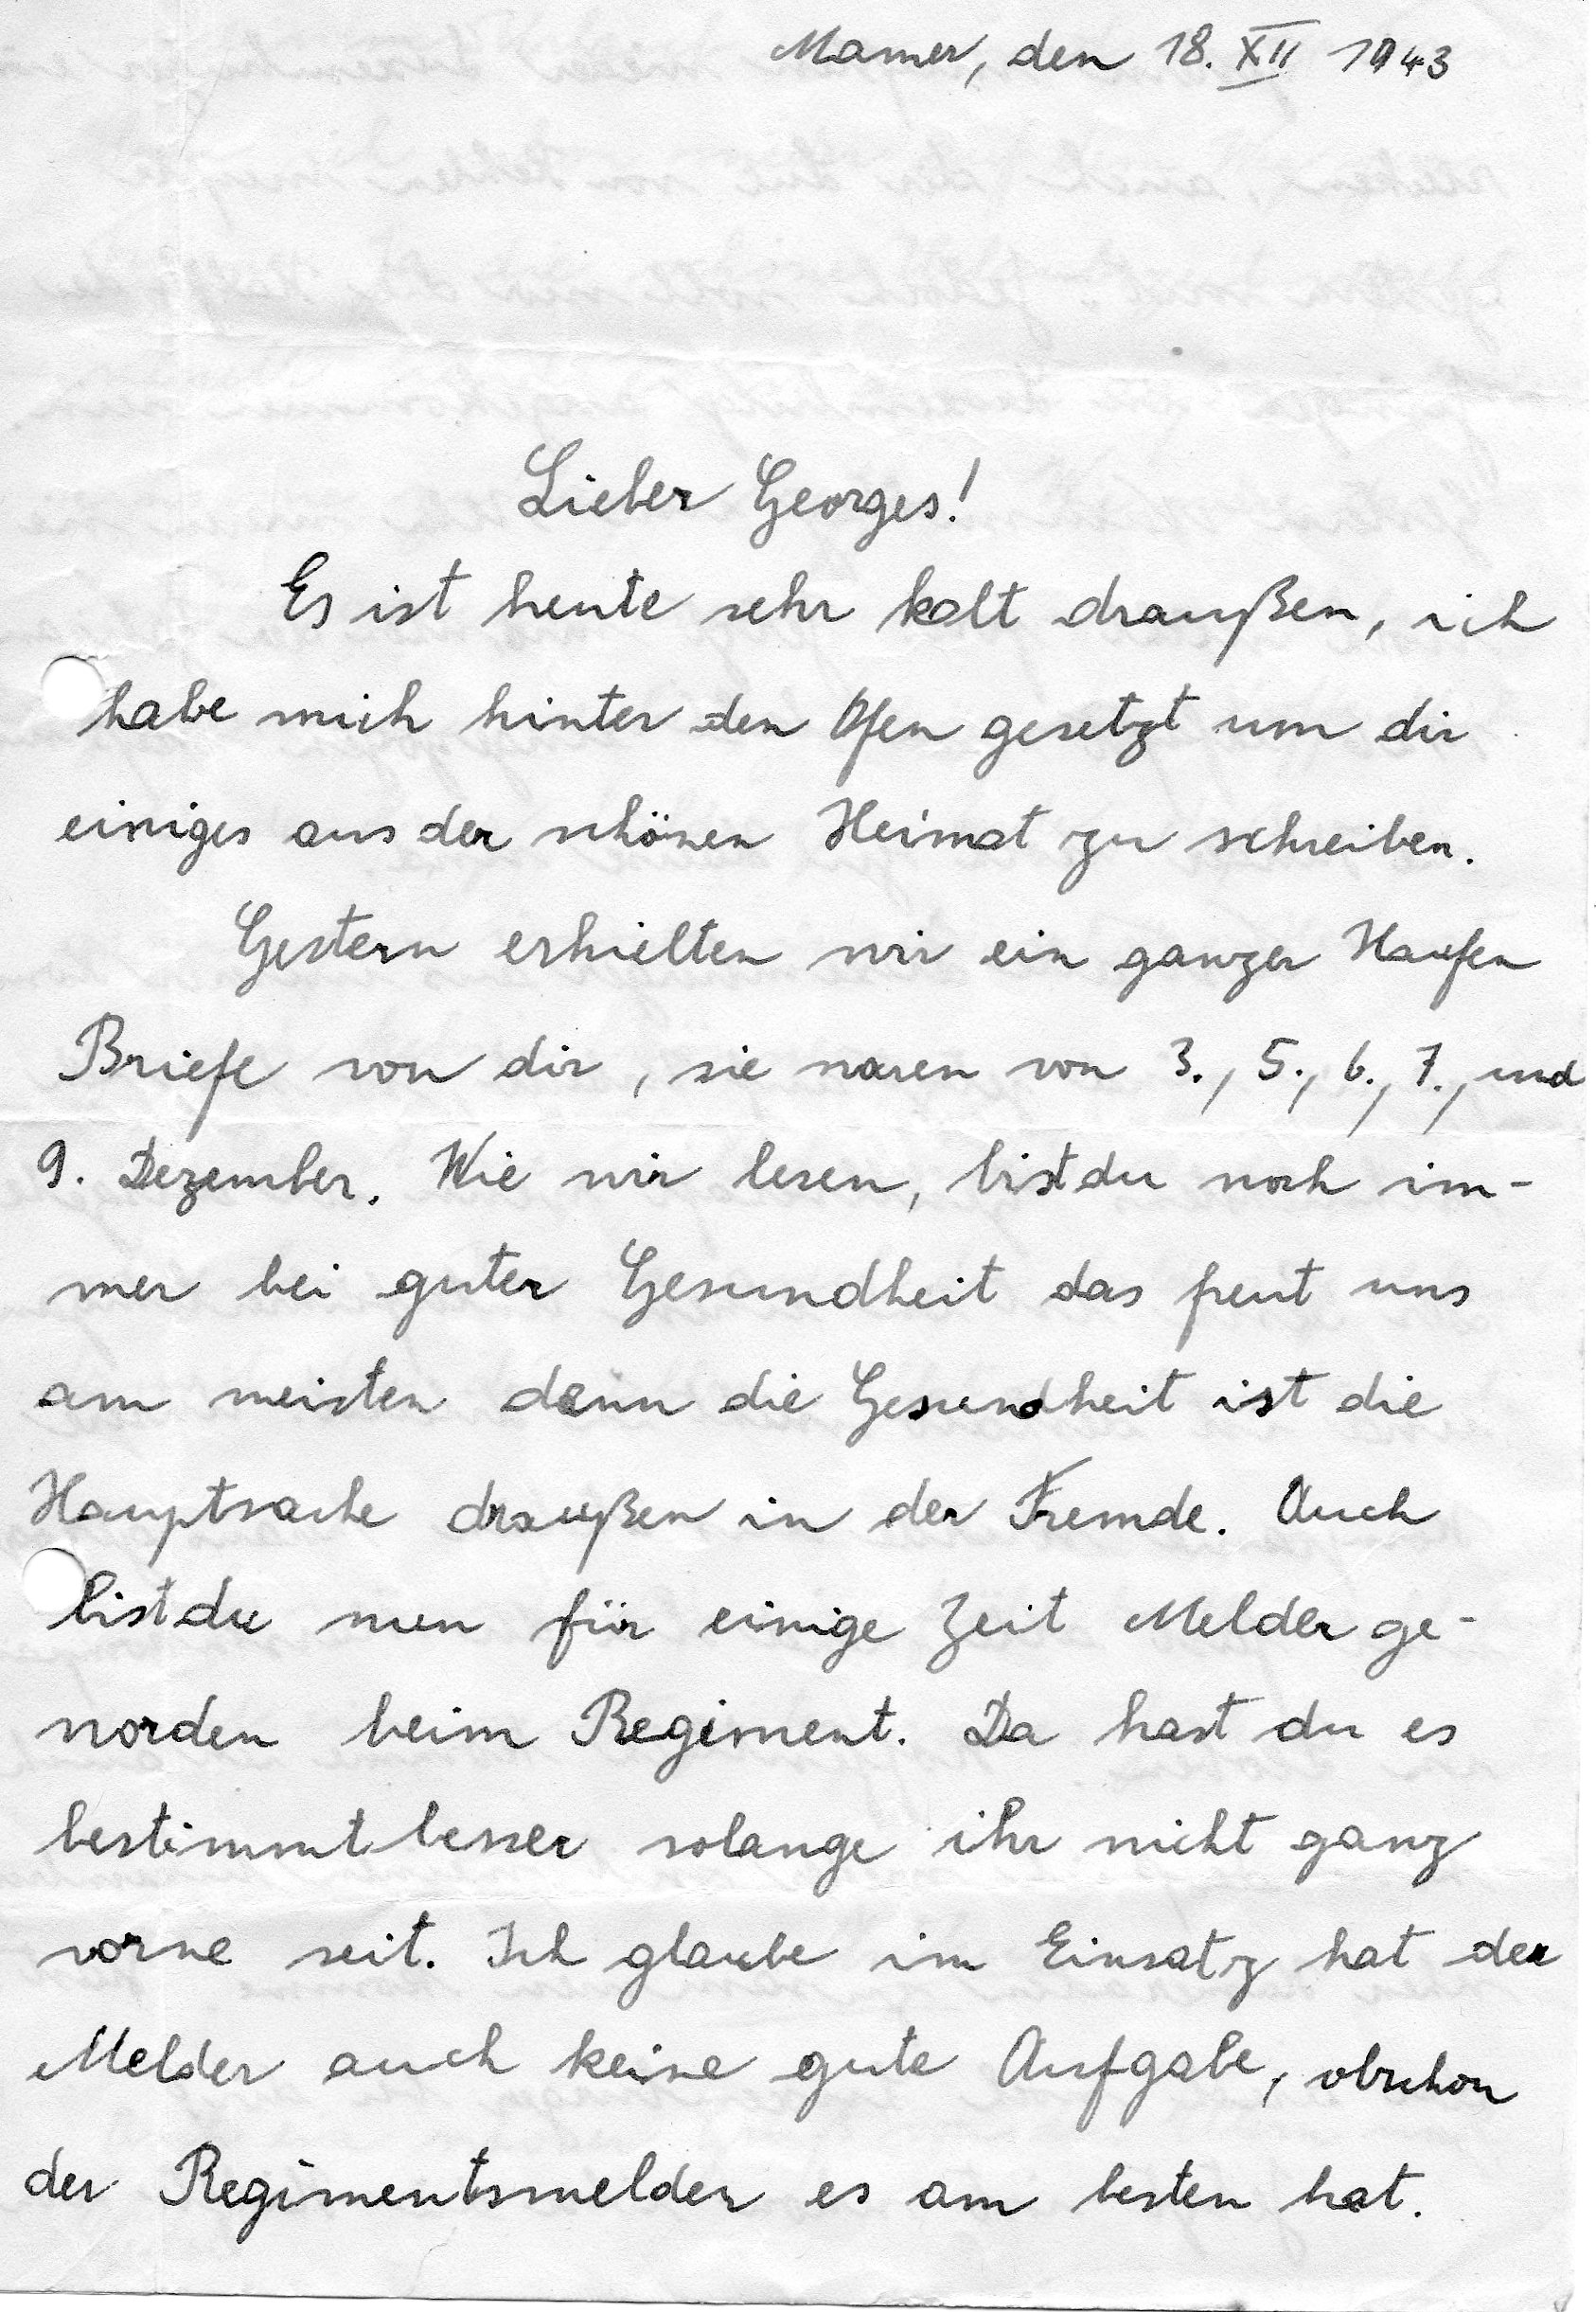 Mamer, den 18. XII 1943
Lieber Georges!
Es ist heute sehr kalt draußen, ich
habe mich hinter den Ofen gesetzt um dir
einiges aus der schönen Heimat zu schreiben.
Gestern erhielten wir ein ganzer Haufen
Briefe von dir, sie waren von 3., 5., 6., 7., und
9. Dezember. Wie wir lesen, bist du noch im-
mer bei guter Gesundheit das freut uns
am meisten denn die Gesundheit ist die
Hauptsache draußen in der Fremde. Auch
bist du nun für einige Zeit Melder ge-
worden beim Regiment. Da hast du es
bestimmt besser solange ihr nicht ganz
vorne seit. Ich glaube im Einsatz hat der
Melder auch keine gute Aufgabe, obschon
der Regimentsmelder es am besten hat.